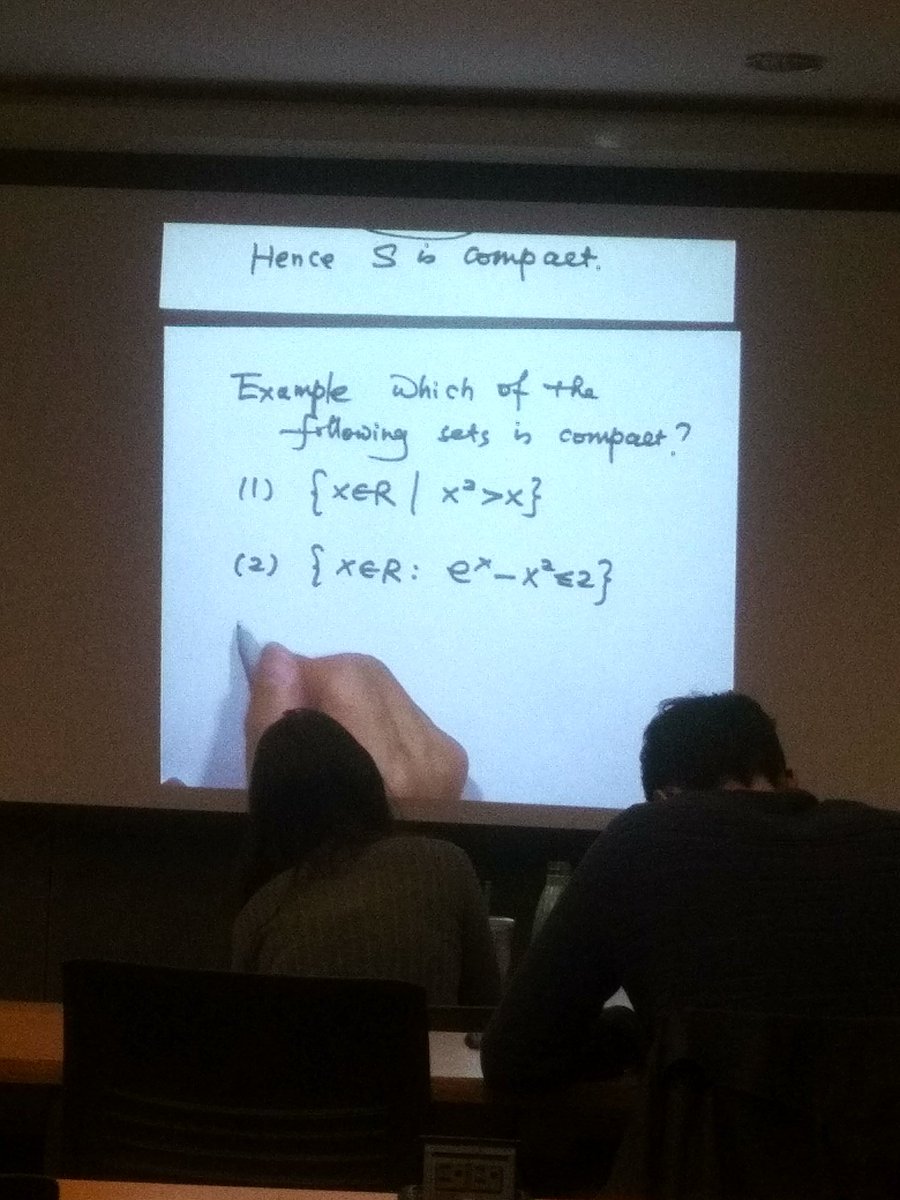 Hence S is compact.
Example Which of the
following sets is compact?
(1) {x∈R | x²>x}
(2) {x∈R: eˣ-x²≤2}